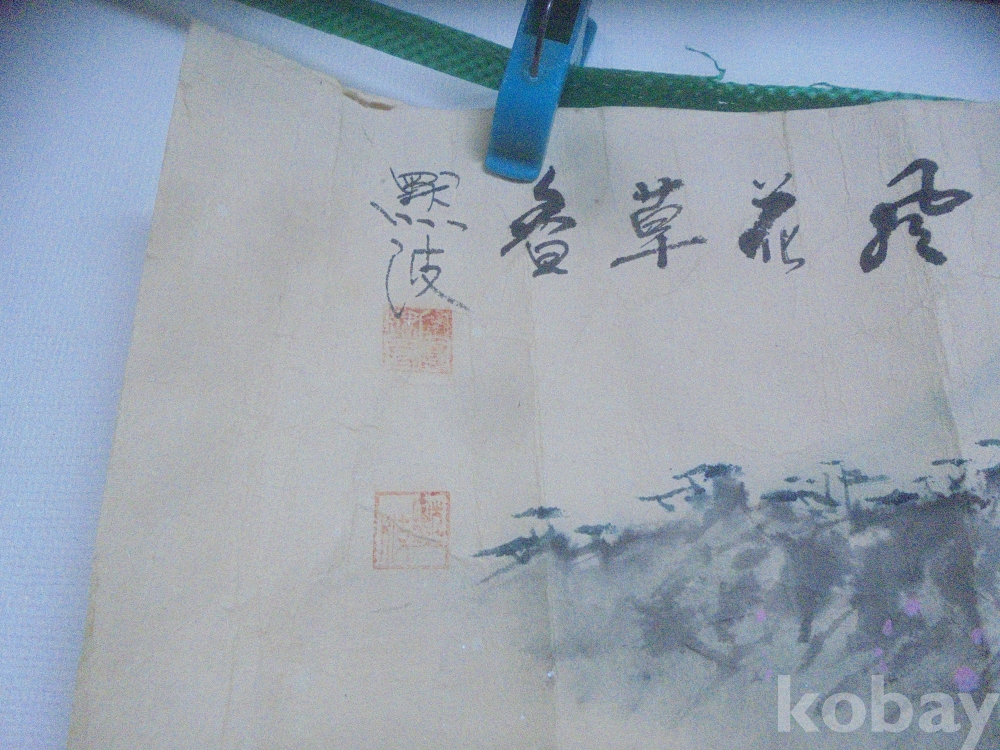 風花草香
黙波
kobay